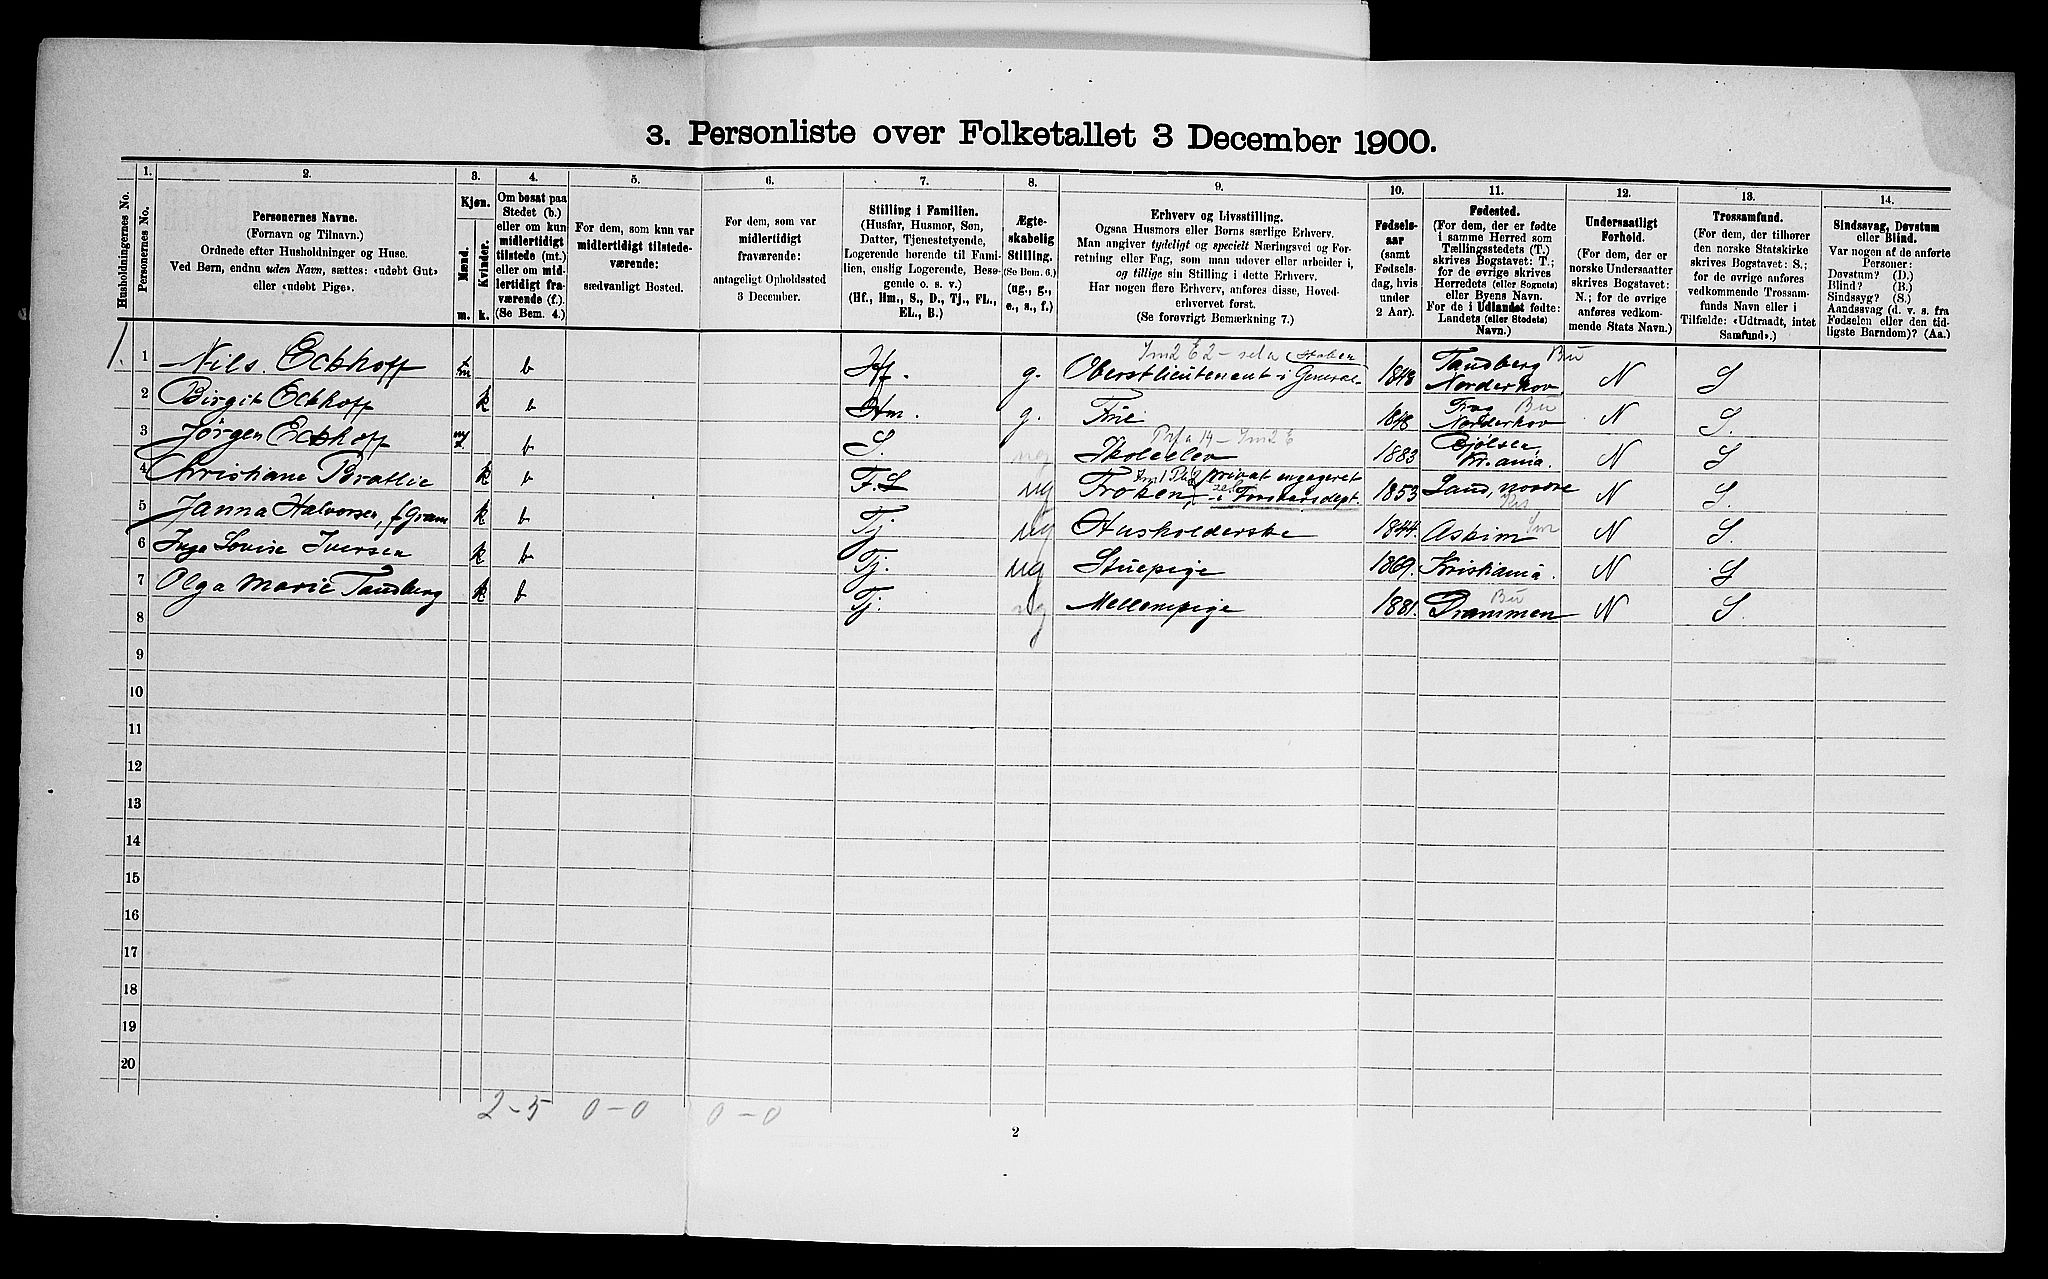 3. Personliste over Folketallet 3 December 1900.
Husholdningernes No.
1.
Personernes No.
2.
Personernes Navne.
(Fornavn og Tilnavn.)
Ordnede efter Husholdninger og Huse.
Ved Børn, endnu uden Navn, sættes: «udøbt Gut»
eller «udøbt Pige».
3.
Kjøn.
Mænd.
Kvinder.
m.
k.
4.
Om bosat paa
Stedet (b.)
eller om kun
midlertidigt
tilstede (mt.)
eller om mid-
lertidigt fra-
værende (f.).
(Se Bem. 4.)
5.
For dem, som kun var
midlertidigt tilstede-
værende:
sædvanligt Bosted.
6.
For dem, som var
midlertidigt
fraværende:
antageligt Opholdssted
3 December.
7.
Stilling i Familien.
(Husfar, Husmor, Søn,
Datter, Tjenestetyende,
Logerende hørende til Fami-
lien, enslig Logerende, Besø-
gende o. s. v.)
(Hf., Hm., S., D., Tj., FL.,
EL., B.)
8.
Ægte-
skabelig
Stilling.
(Se Bem. 6.)
(ug., g.,
e., s., f.)
9.
Erhverv og Livsstilling.
Ogsaa Husmors eller Børns særlige Erhverv.
Man angiver tydeligt og specielt Næringsvei og For-
retning eller Fag, som man udover eller arbeider i,
og tillige sin Stilling i dette Erhverv.
Har nogen flere Erhverv, anføres disse, Hoved-
erhvervet først.
(Se forøvrigt Bemærkning 7.)
10.
Fødsels-
aar
(samt
Fødsels-
dag, hvis
under
2 Aar).
11.
Fødested.
(For dem, der er fødte
i samme Herred som
Tællingsstedets (T.)
skrives Bogstavet: T.;
for de øvrige skrives
Herredets (eller Sognets)
eller Byens Navn.
For de i Udlandet fødte:
Landets (eller Stedets)
Navn.)
12.
Undersaatligt
Forhold.
(For dem, der er
norske Undersaatter
skrives Bogstavet:
N.; for de øvrige
anføres vedkom-
mende Stats Navn.)
13.
Trossamfund.
(For dem, der tilhører
den norske Statskirke
skrives Bogstavet: S.;
for de øvrige anføres
vedkommende Trossam-
funds Navn eller i
Tilfælde: «Udtraadt, intet
Samfund».)
14.
Sindssvag, Døvstum
eller Blind.
Var nogen af de anførte
Personer:
Døvstum? (D.)
Blind? (B.)
Sindssyg? (S.)
Aandssvag (d. v. s. fra
Fødselen eller den tid-
ligste Barndom)? (Aa.)
1. 1 Nils Eckhoff m b Hf. g. Oberstlieutenant i General- staben 1848 Tandberg Bu
Norderhov N S
2 Birgit Eckhoff k b Hm. g. Frue 1848 Norderhov Bu N S.
3 Jørgen Eckhoff b S. ug Skoleelev 1883 Bjølsen
Kr.ania. N S
4 Christiane Bratlie k b F.L ug Frøken, privat engageret
i Forsvarsdept. 1853 Land, nordre N S.
5 Janna Halvorsen, f. Gram k b Tj ug Husholderske 1844. Askim N S.
6 Inga Lovise Iversen k b Tj. ug Stuepige 1869. Kristiania. N S
7 Olga Marie Tandberg k b Tj. ug Mellempige 1881. Drammen Bu N S.
8
9
10
11
12
13
14
15
16
17
18
19
20
2 – 5 0 – 0 0 – 0
2